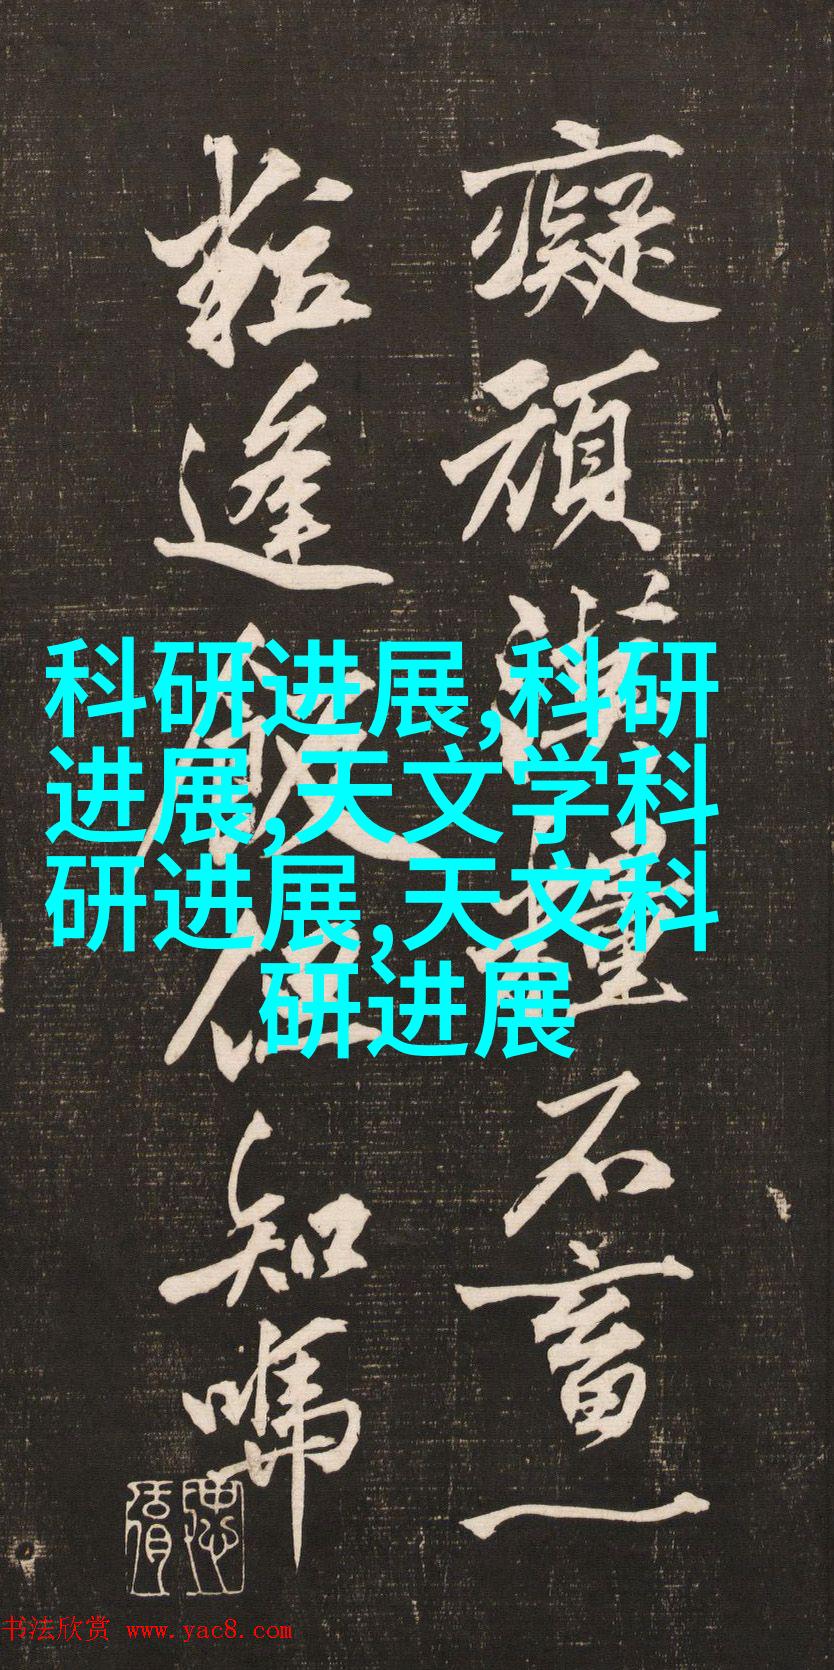 癡頑漢擔石畜一
粒逢飢但知鳴
科研进展,科研
进展,天文学科
研进展,天文科
研进展
书法欣赏 www.yac8.com